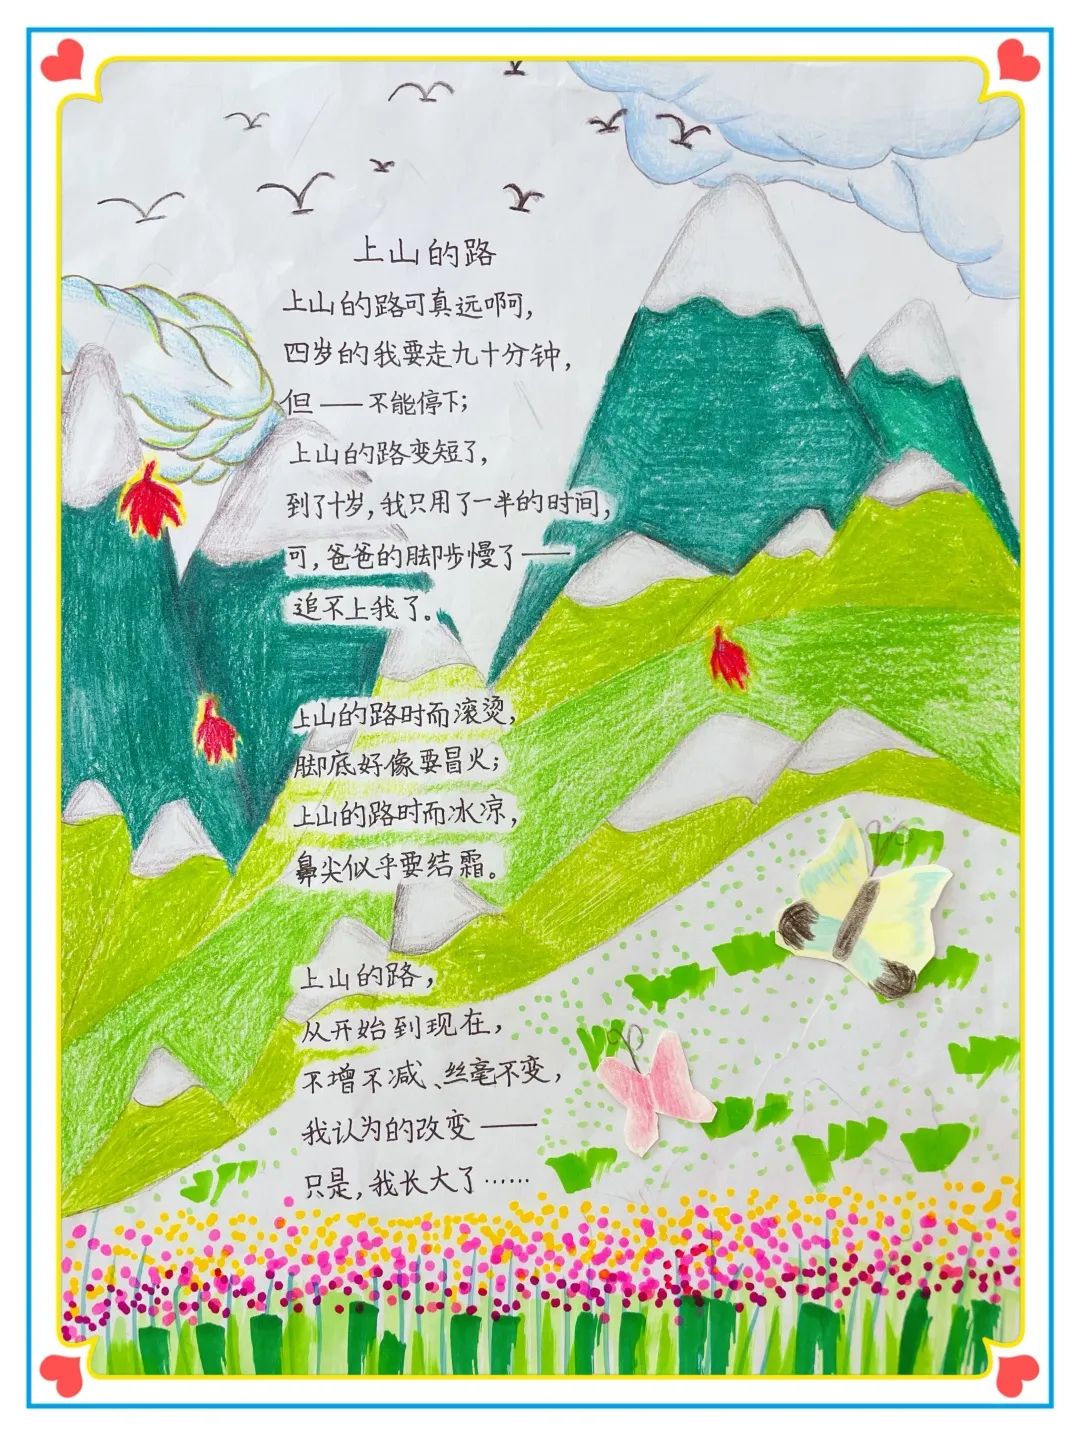 上山的路
上山的路可真远啊,
四岁的我要走九十分钟,
但——不能停下;
上山的路变短了,
到了十岁,我只用了一半的时间,
可,爸爸的脚步慢了——
追不上我了。
上山的路时而滚烫,
脚底好像要冒火;
上山的路时而冰凉,
鼻尖似乎要结霜。
上山的路,
从开始到现在,
不增不减、丝毫不变,
我认为的改变——
只是,我长大了……